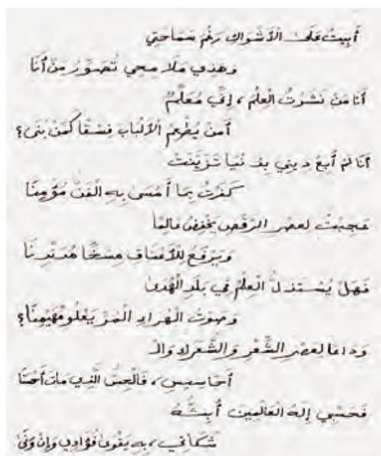 أَبِيتُ عَلَى الْأَشْوَاكِ رَغْمَ سَمَاحَتِي
وَهَذِي مَلَامِحِي تُصَوِّرُ مَنْ أَنَا
أَنَا مَنْ نَشَرْتُ الْعِلْمَ، إِنِّي مُعَلِّمٌ
أَمَنْ يُطْعِمُ الْأَلْبَابَ فِسْقًا كَمَنْ بَنَى؟
أَنَا لَمْ أَبِعْ دِينِي بِدُنْيَا تَزَيَّنَتْ
كَفَرْتُ بِمَا أَمْسَى بِهِ الْفَنُّ مُؤْمِنًا
عَجِبْتُ لِعَصْرِ الرَّقْصِ يَخْفِضُ عَالِمًا
وَيَرْفَعُ لِلْأَعْنَاقِ مِسْخًا
فَهَلْ يُسْتَذَلُّ الْعِلْمُ فِي بَلَدِ الْهُدَى
وَصَوْتُ الْهُرَاءِ الْمُرِّ يَعْلُو مُهَيْمِنًا؟
وَدَاعًا لِعَصْرِ الشِّعْرِ وَالشُّعَرَاءِ وَالْـ
أَحَاسِيسِ، فَالْحِسُّ الَّذِي مَاتَ أَحْسَنَا
فَحَسْبِي إِلَهُ الْعَالَمِينَ أَبُثُّهُ
شَكَاتِي، بِهِ يَقْوَى فُؤَادِي وَإِنْ وَنَى